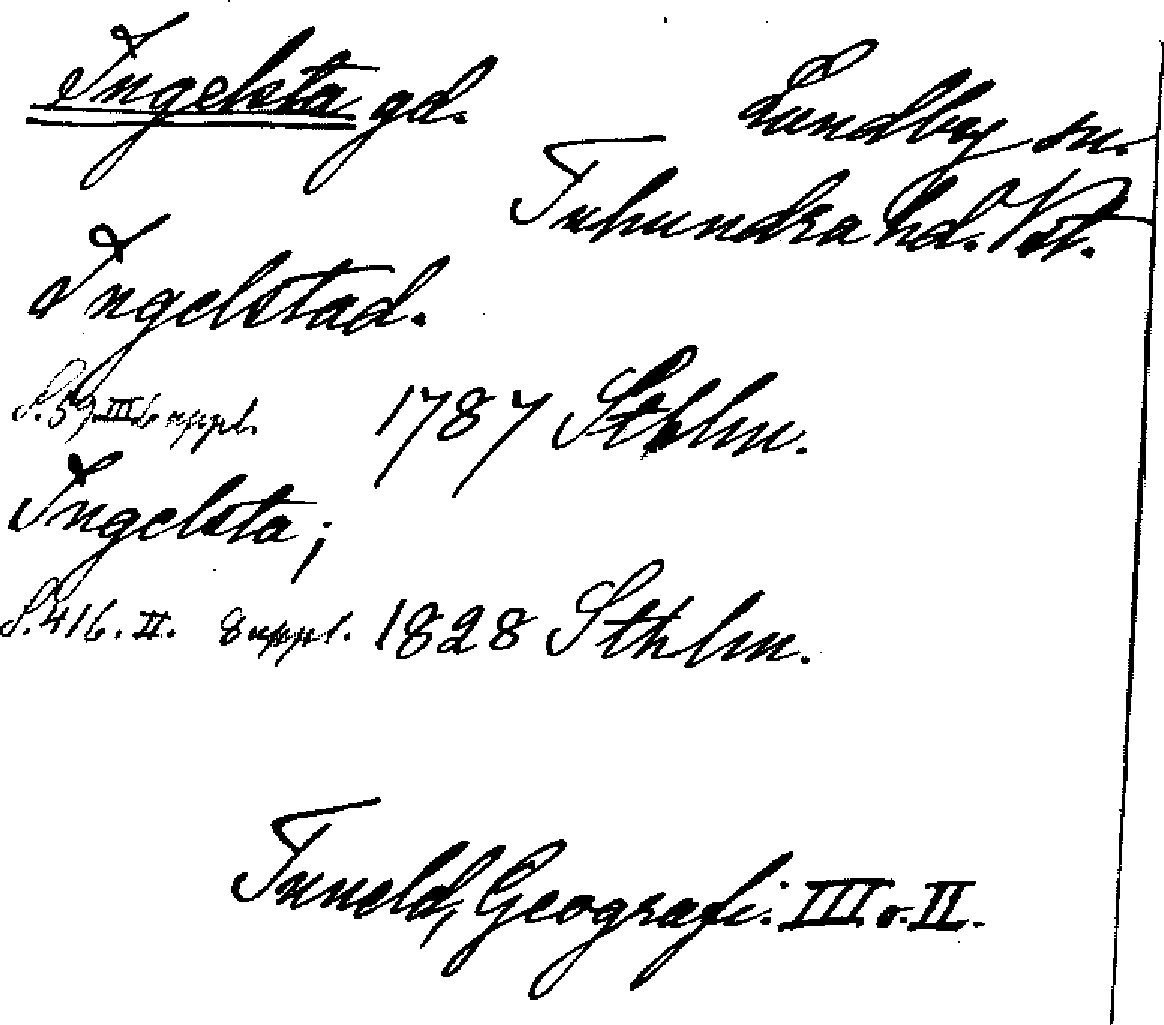 Ingelsta gd. Lundby sn.
Tuhundra hd. Vst.
Ingelstad.
S. 59. III de uppl. 1787 Sthlm.
Ingelsta;
S. 416. II. 8 uppl. 1828 Sthlm.
Tuneld, Geografi. III o. II.